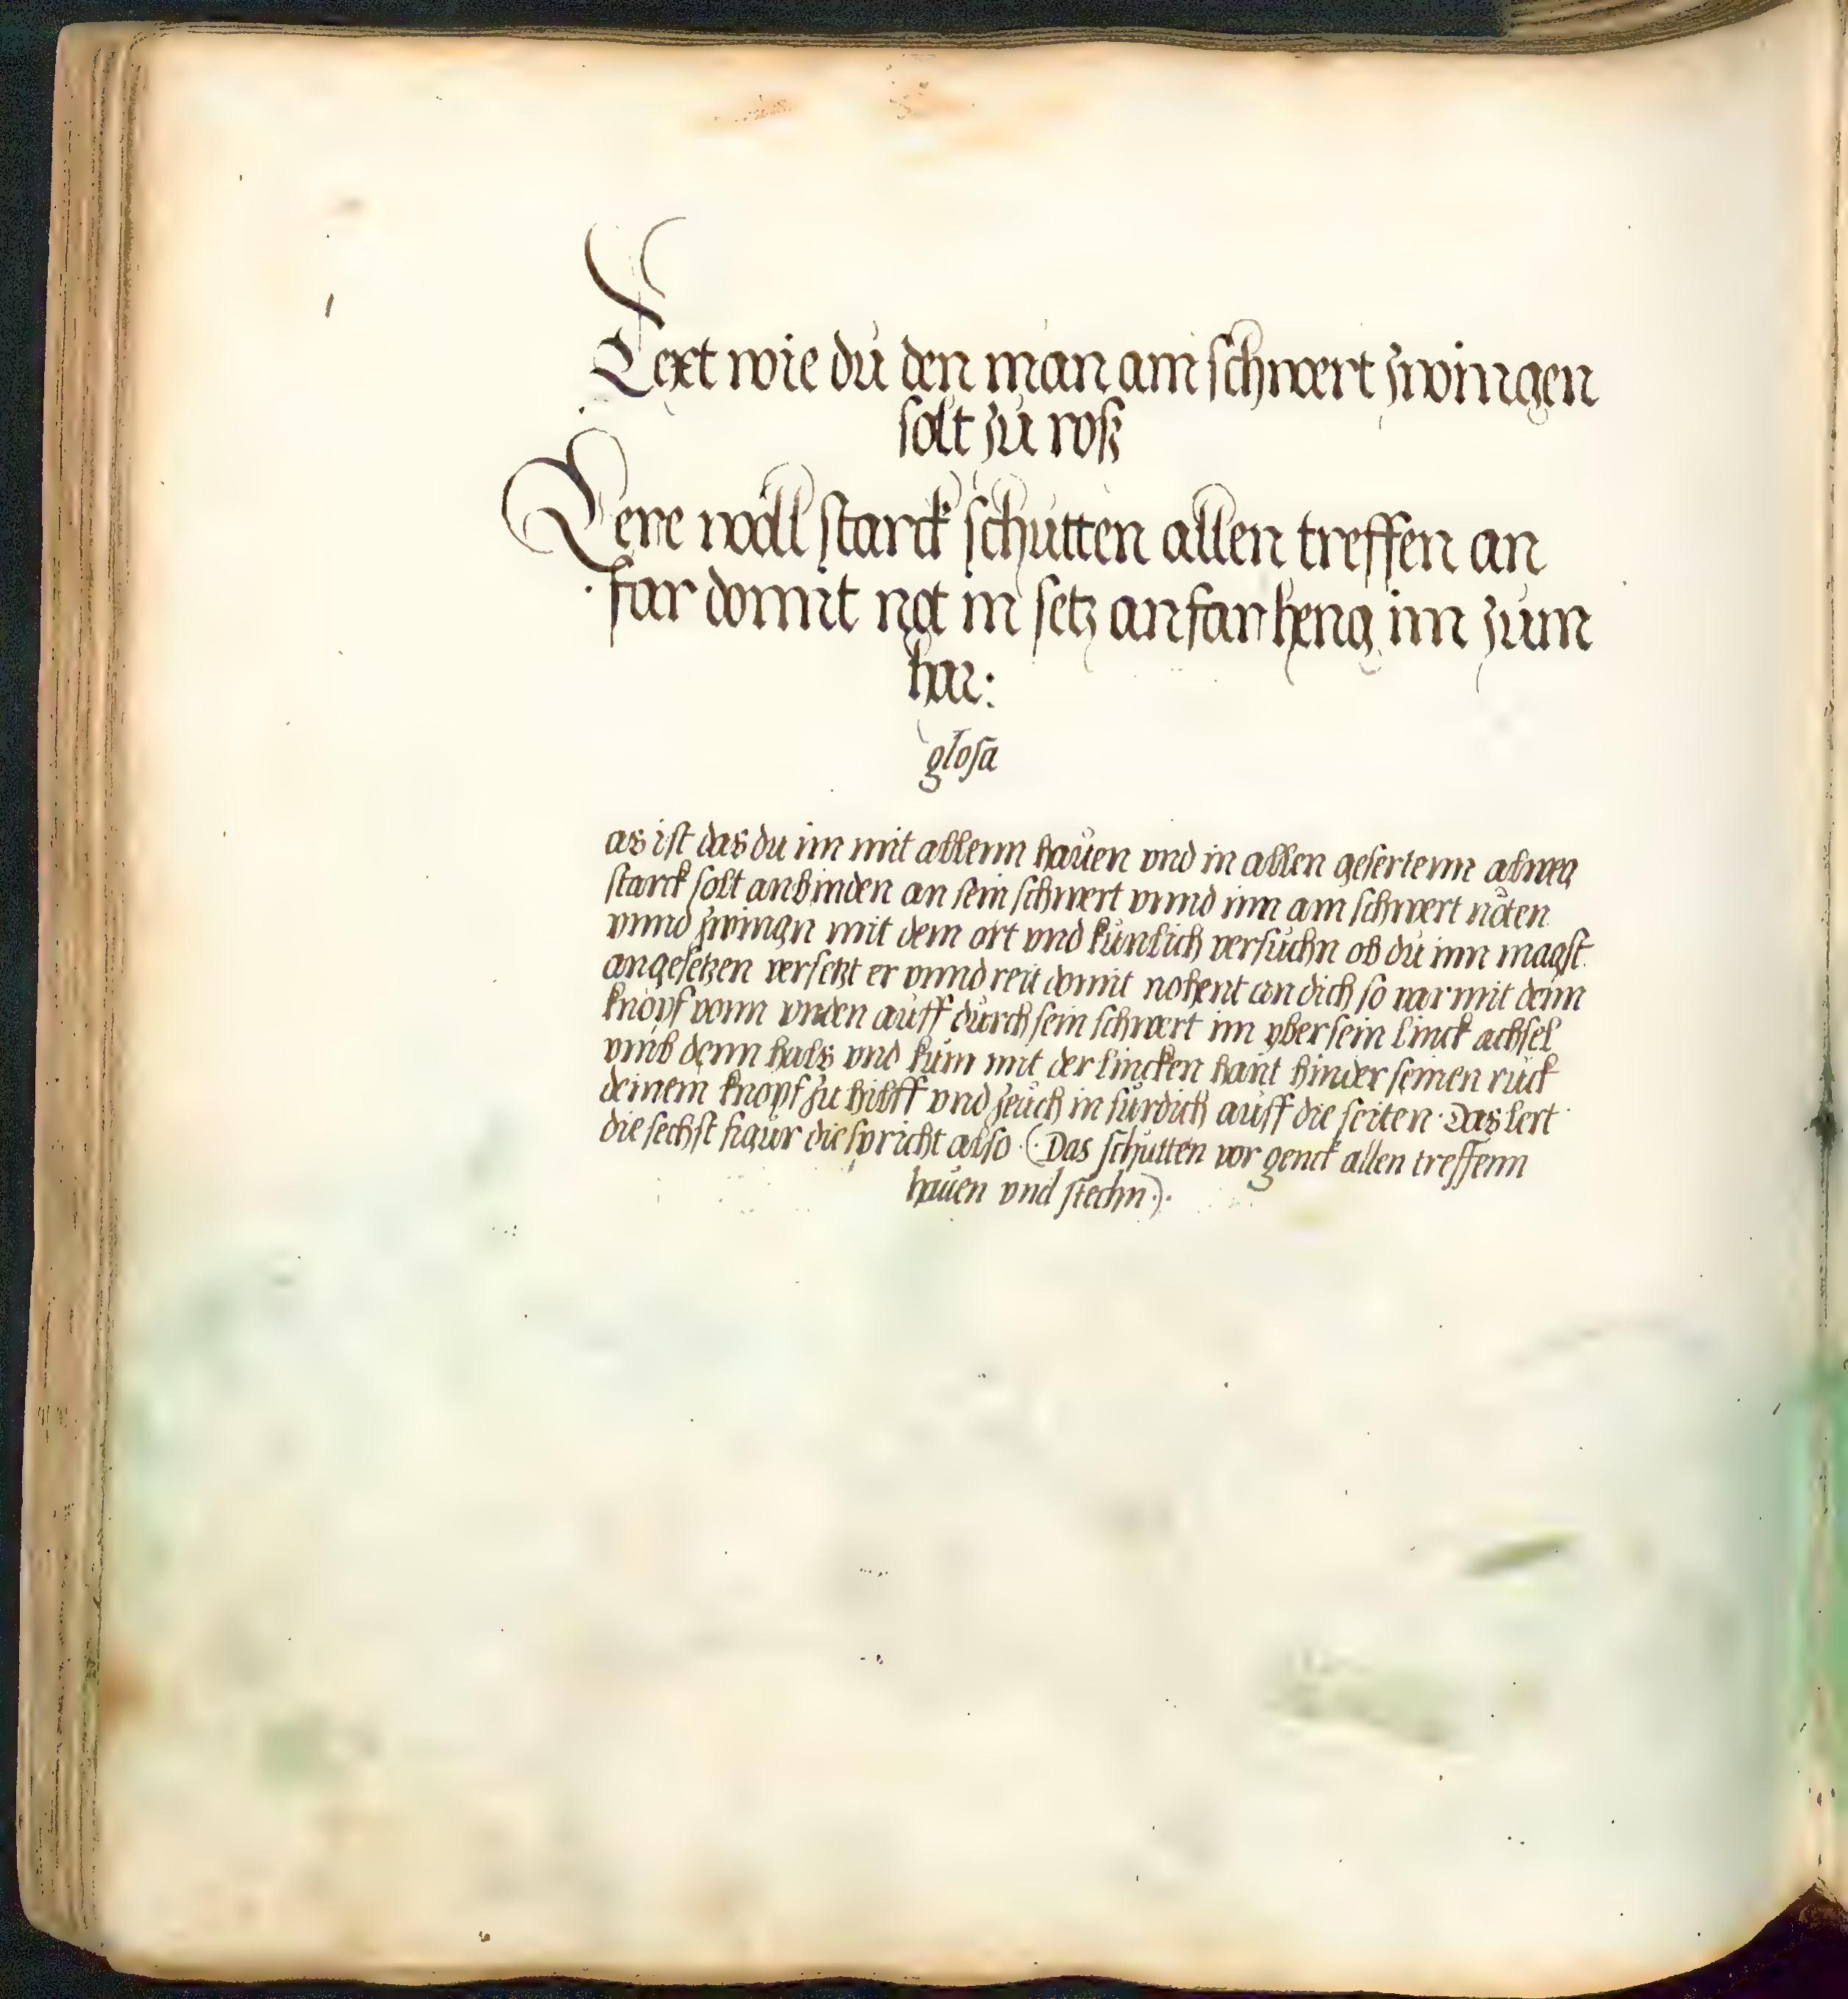 Text wie dú den man am schwert zwingen
solt zú roß
Lere woll starck schútten allen treffen an
far domit not in setz an far heng im zúm
har:
glosa
as ist das du im mit allenn haúen vnd in allen gefertenn alweg
starck solt anbinden an sein schwert vnnd inn am schwert nöten
vnnd zwingn mit dem ort vnd kúnlich versúchn ob dú inn magst
angesetzen versetzt er vnnd reit domit nohent an dich so var mit dem
knopf vonn vnden aúff dúrch sein schwert im yber sein linck achsel
vmb denn hals vnd kúm mit der lincken hant hinder seinen rúck
deinem knopf zu hilff vnd zeúch in fúrdich aúff die seiten · Das lert
die sechst figúr die spricht also (· Das schútten vor genck allen treffenn
haúen vnd stechn ·) ·